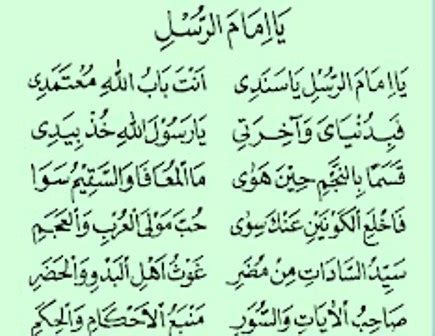 يَا اِمَامَ الرُّسْلِ
يَا اِمَامَ الرُّسْلِ يَا سَنَدِى اَنْتَ بَابُ اللهِ مُعْتَمَدِى
فَبِدُنْيَاىَ وَآخِرَتِى يَارَسُوْلَ اللهِ خُذْ بِيَدِى
قَسَمًا بِالنَّجْمِ حِيْنَ هَوٰى مَاالْمُعَافَا وَالسَّقِيْمُ سَوَا
فَاخْلَعِ الْكَوْنَيْنِ عَنْكَ سِوٰى حُبَّ مَوْلَى الْعُرْبِ وَالْعَجَمِ
سَيِّدُ السَّادَاتِ مِنْ مُضَرِ غَوْثُ اَهْلِ الْبَدْوِ وَالْحَضَرِ
صَاحِبُ الْاٰيَاتِ وَالسُّوَرِ مَنْبَعُ الْاَحْكَامِ وَالْحِكَمِ